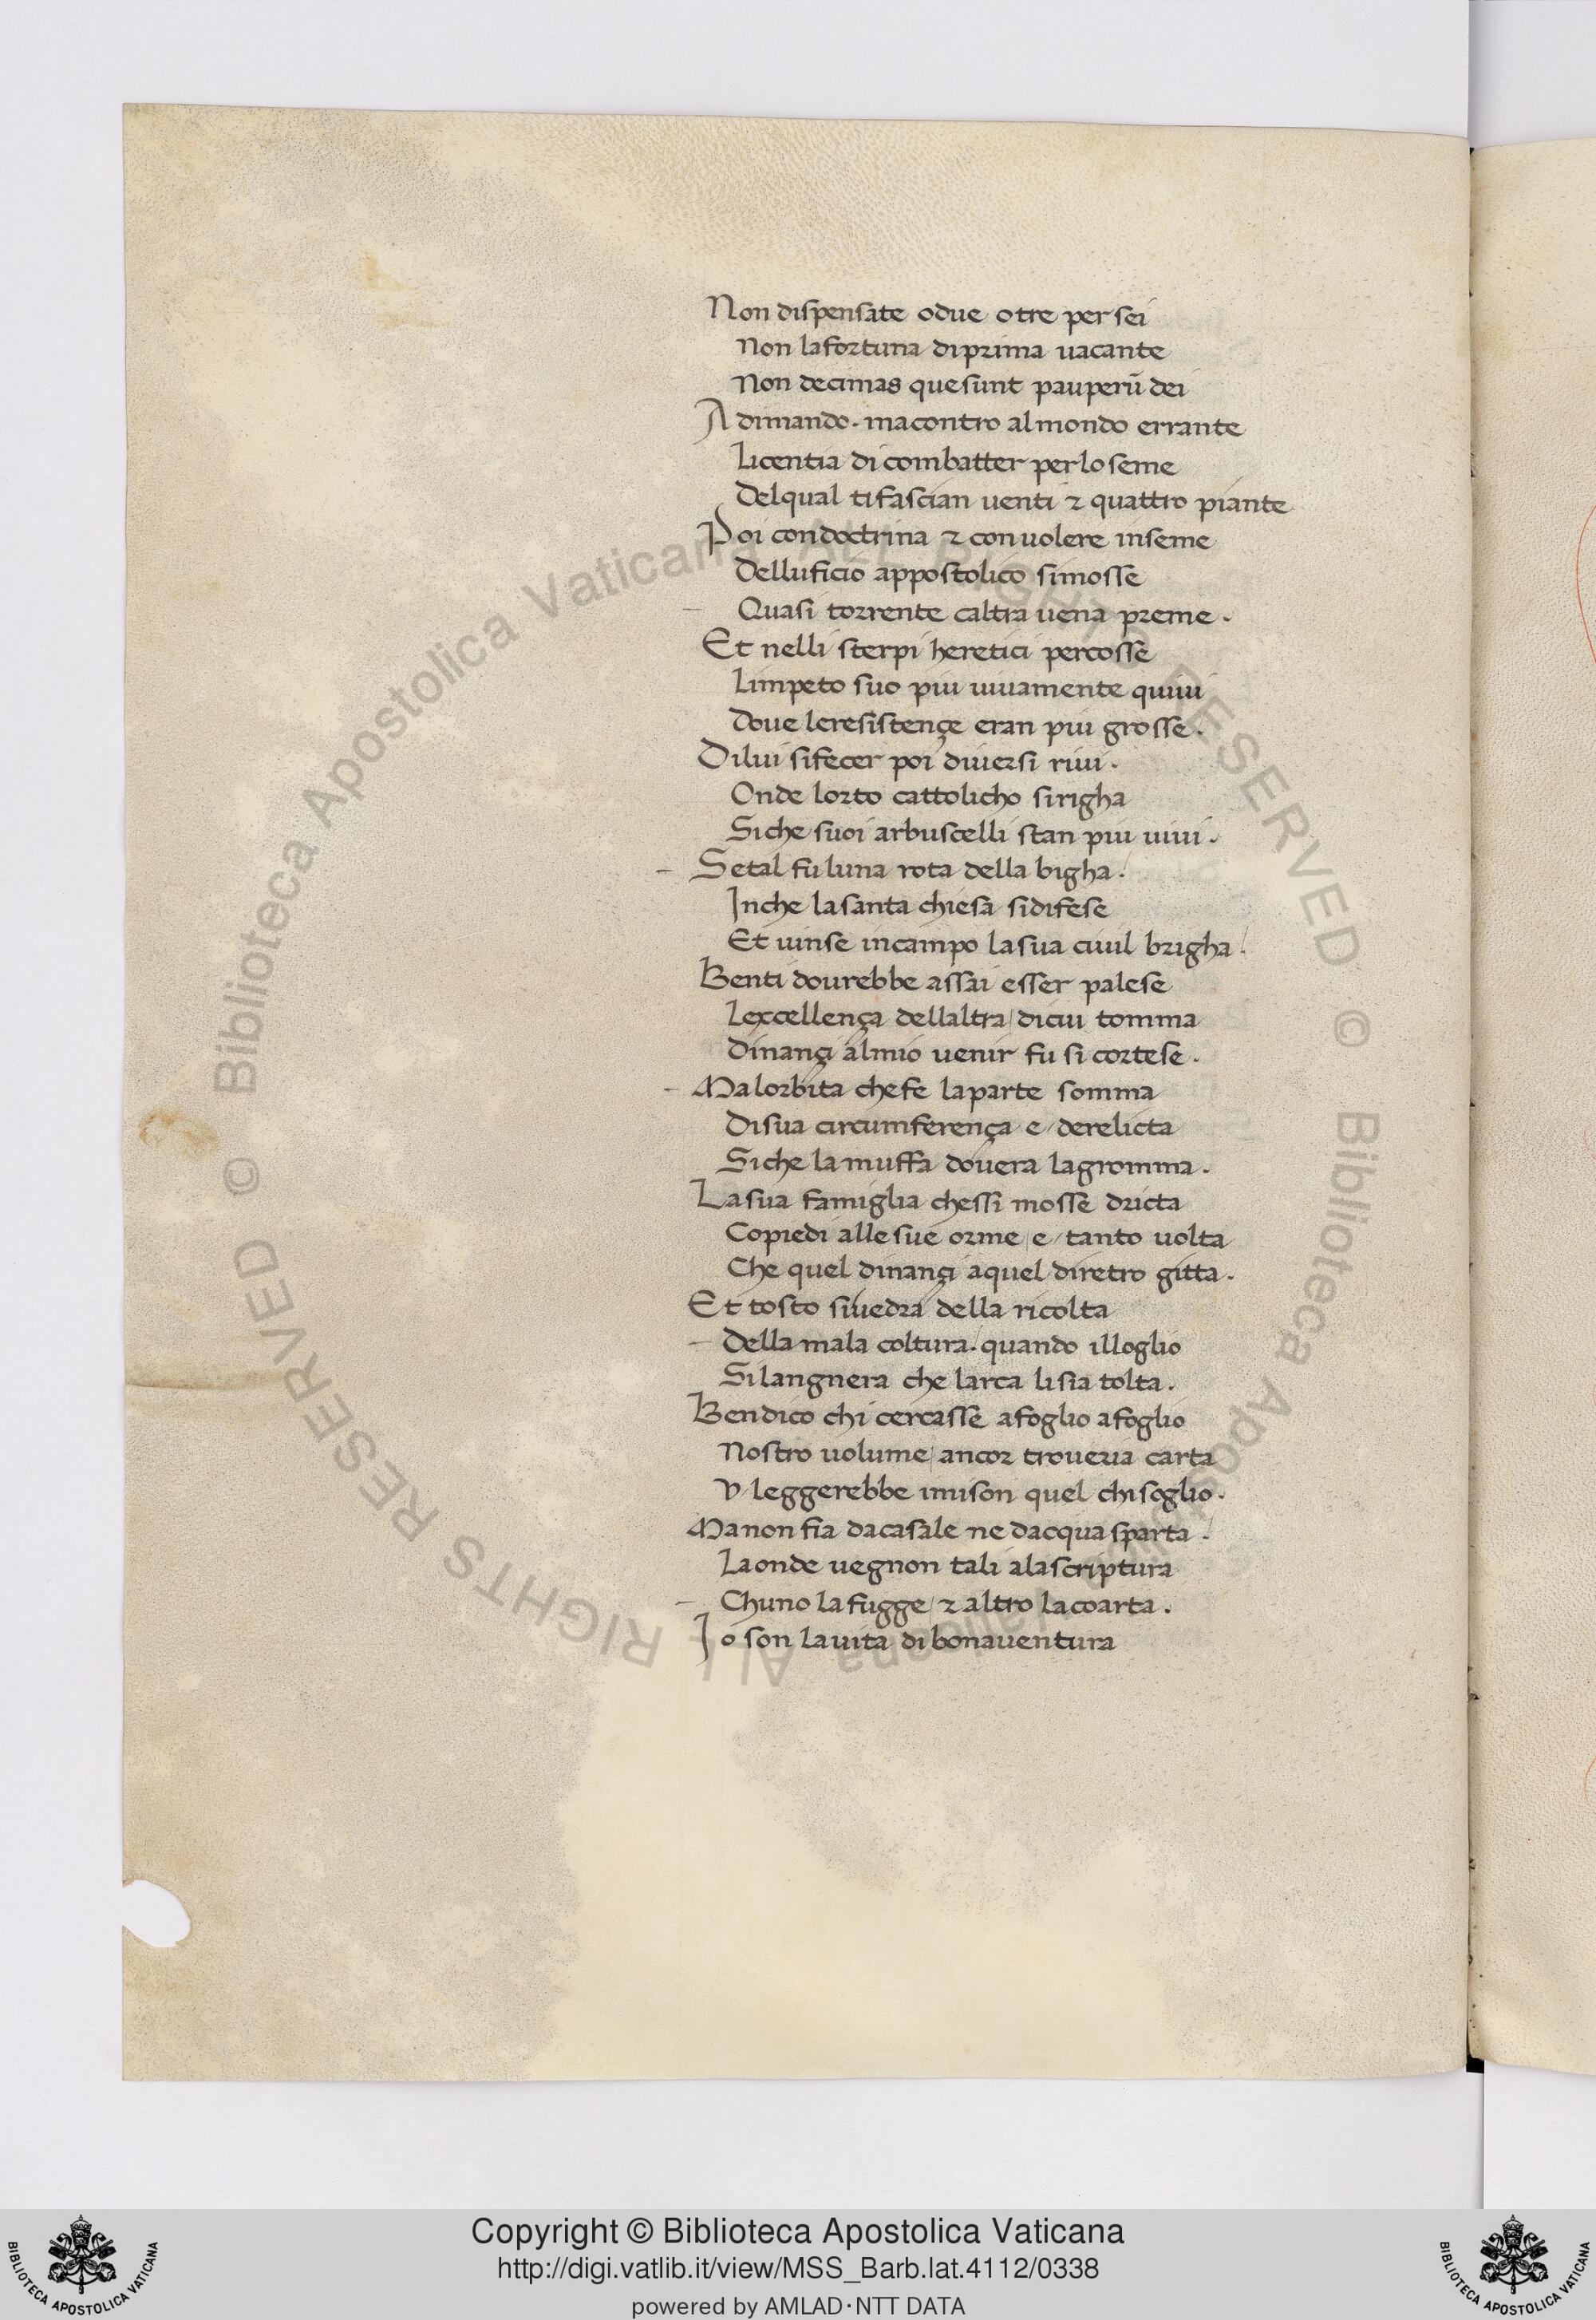 Non dispensate odue otre per sei
Non lafortuna diprima uacante
Non decimas quesunt pauperū dei
Adimando. macontro almondo errante
Licentia di combatter perloseme
Delqual tifascian uenti & quattro piante
Poi condoctrina & conuolere inseme
Delluficio appostolico simosse
Quasi torrente caltra uena preme.
Et nelli sterpi heretici percosse
Limpeto suo piu uiuamente quiui
Doue leresistençe eran piu grosse.
Dilui sifecer poi diuersi riui.
Onde lorto cattolicho sirigha
Siche suoi arbuscelli stan piu uiui.
Setal fu luna rota della bigha.
Inche lasanta chiesa sidifese
Et uinse incampo lasua ciuil brigha.
Benti dourebbe assai esser palese
Lexcellença dellaltra/ dicui tomma
Dinançi almio uenir fu si cortese.
Malorbita chefe laparte somma
Disua circumferença e/ derelicta
Siche la muffa douera lagromma.
Lasua famiglia chessi mosse dricta
Copiedi allesue orme/ e/ tanto uolta
Che quel dinançi aquel diretro gitta.
Et tosto siuedra della ricolta
Della mala coltura. quando illoglio
Silangnera che larca lisia tolta.
Bendico chi cercasse afoglio afoglio
Nostro uolume/ ancor troueria carta
V leggerebbe imison quel chisoglio.
Manon fia dacasale ne dacqua sparta.
Laonde uegnon tali alascriptura
Chuno la fugge/ & altro lacoarta.
Io son lauita di bonauentura
© Biblioteca Apostolica Vaticana ALL RIGHTS RESERVED © Biblioteca Apostolica Vaticana ALL RIGHTS RESERVED
Copyright © Biblioteca Apostolica Vaticana
http://digi.vatlib.it/view/MSS_Barb.lat.4112/0338
powered by AMLAD·NTT DATA
BIBLIOTECA APOSTOLICA VATICANA
BIBLIOTECA APOSTOLICA VATICANA